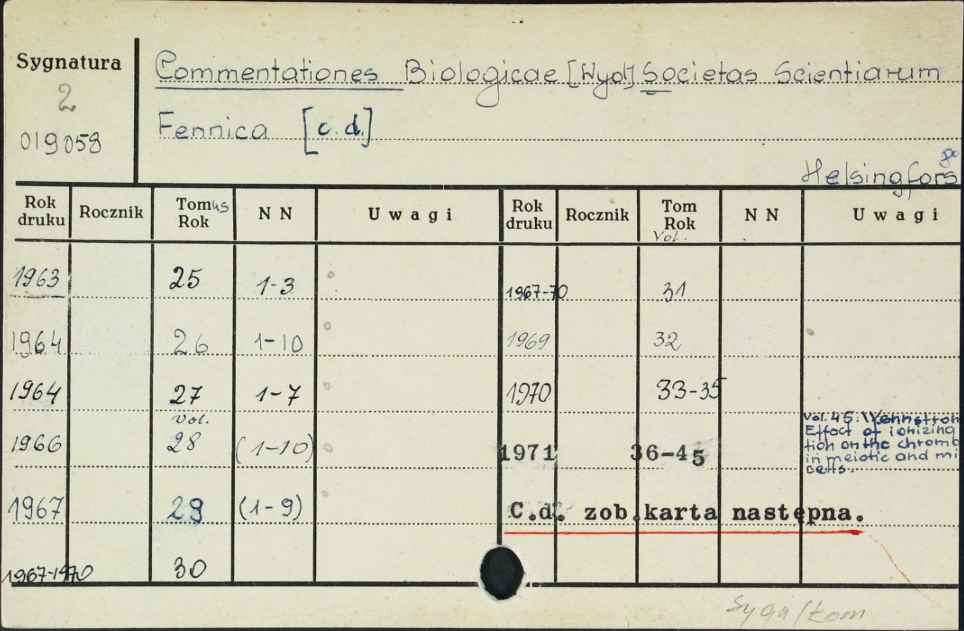 Sygnatura
2
019058
Commentationes Biologicae [Wyd] Societas Scientiarum
Fennica [c.d.]
Helsingfors
Rok druku Rocznik Tomus Rok N N Uwagi Rok druku Rocznik Tom Rok Vol. N N Uwagi
1963 25 1-3 1967-70 31
1964 26 1-10 1969 32
1964 27 1-7 1970 33-35
1966 Vol. 28 (1-10) 1971 36-45
Vol. 45:
Effect of ionizing
tion on the chromo
in meiotic and mi
cells.
1967 29 (1-9) C.d. zob. karta następna.
1967-1970 30
Sygn/tom